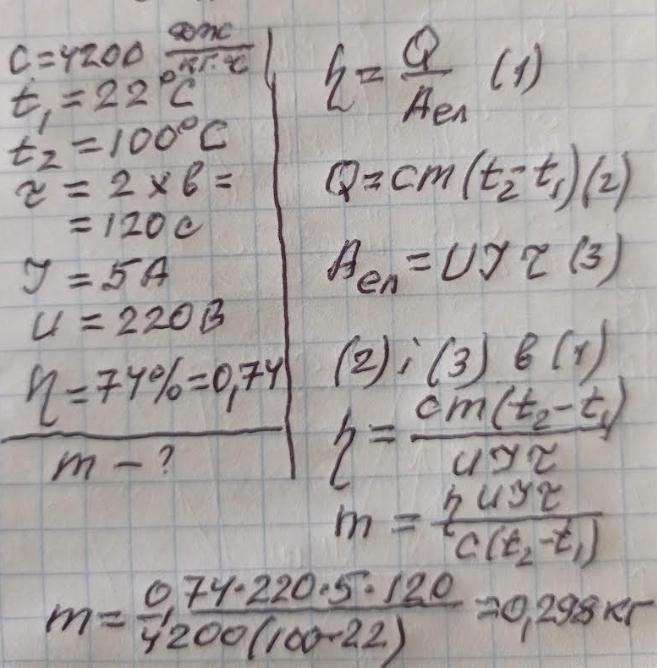 c = 4200 Дж/кг·°C
t₁ = 22°C
t₂ = 100°C
τ = 2 хв =
= 120 с
I = 5 А
U = 220 В
η = 74% = 0,74
m - ?
η = Q/Aел (1)
Q = cm(t₂ - t₁) (2)
Aел = UIτ (3)
(2) і (3) в (1)
η = cm(t₂ - t₁)/UIτ
m = ηUIτ/c(t₂ - t₁)
m = 0,74·220·5·120/4200(100-22) = 0,298 кг